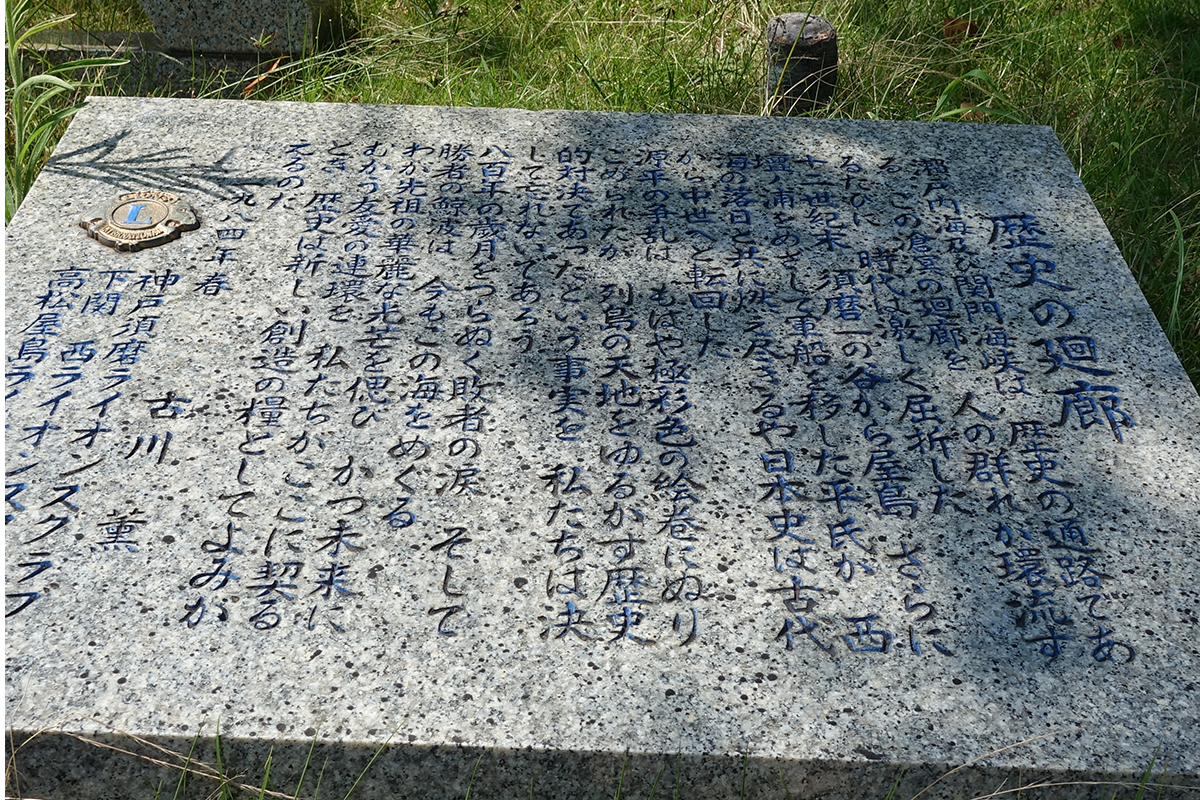 歴史の廻廊
瀬戸内海及び関門海峡は 歴史の通路であ
る この蒼冥の廻廊を 人の群れが環流す
るたびに 時代は激しく屈折した
十二世紀末 須磨一の谷から屋島 さらに
壇ノ浦をめざして軍船を移した平氏が 西
海の落日と共に燃え尽きるや日本史は古代
から中世へと転回した
源平の争乱は もはや極彩色の絵巻にぬり
こめられたが 列島の天地をゆるがす歴史
的対決であったという事実を 私たちは決
して忘れないであろう
八百年の歳月をつらぬく敗者の涙 そして
勝者の鯨波は 今もこの海をめぐる
わが先祖の華麗な光芒を偲び かつ未来に
むかう友愛の連環を 私たちがここに契る
とき 歴史は新しい創造の糧としてよみが
えるのだ
一九八四年春
古川 薫
神戸須磨ライオンズクラブ
下関 西ライオンズクラブ
高松屋島ライオンズ
LIONS
L
INTERNATIONAL